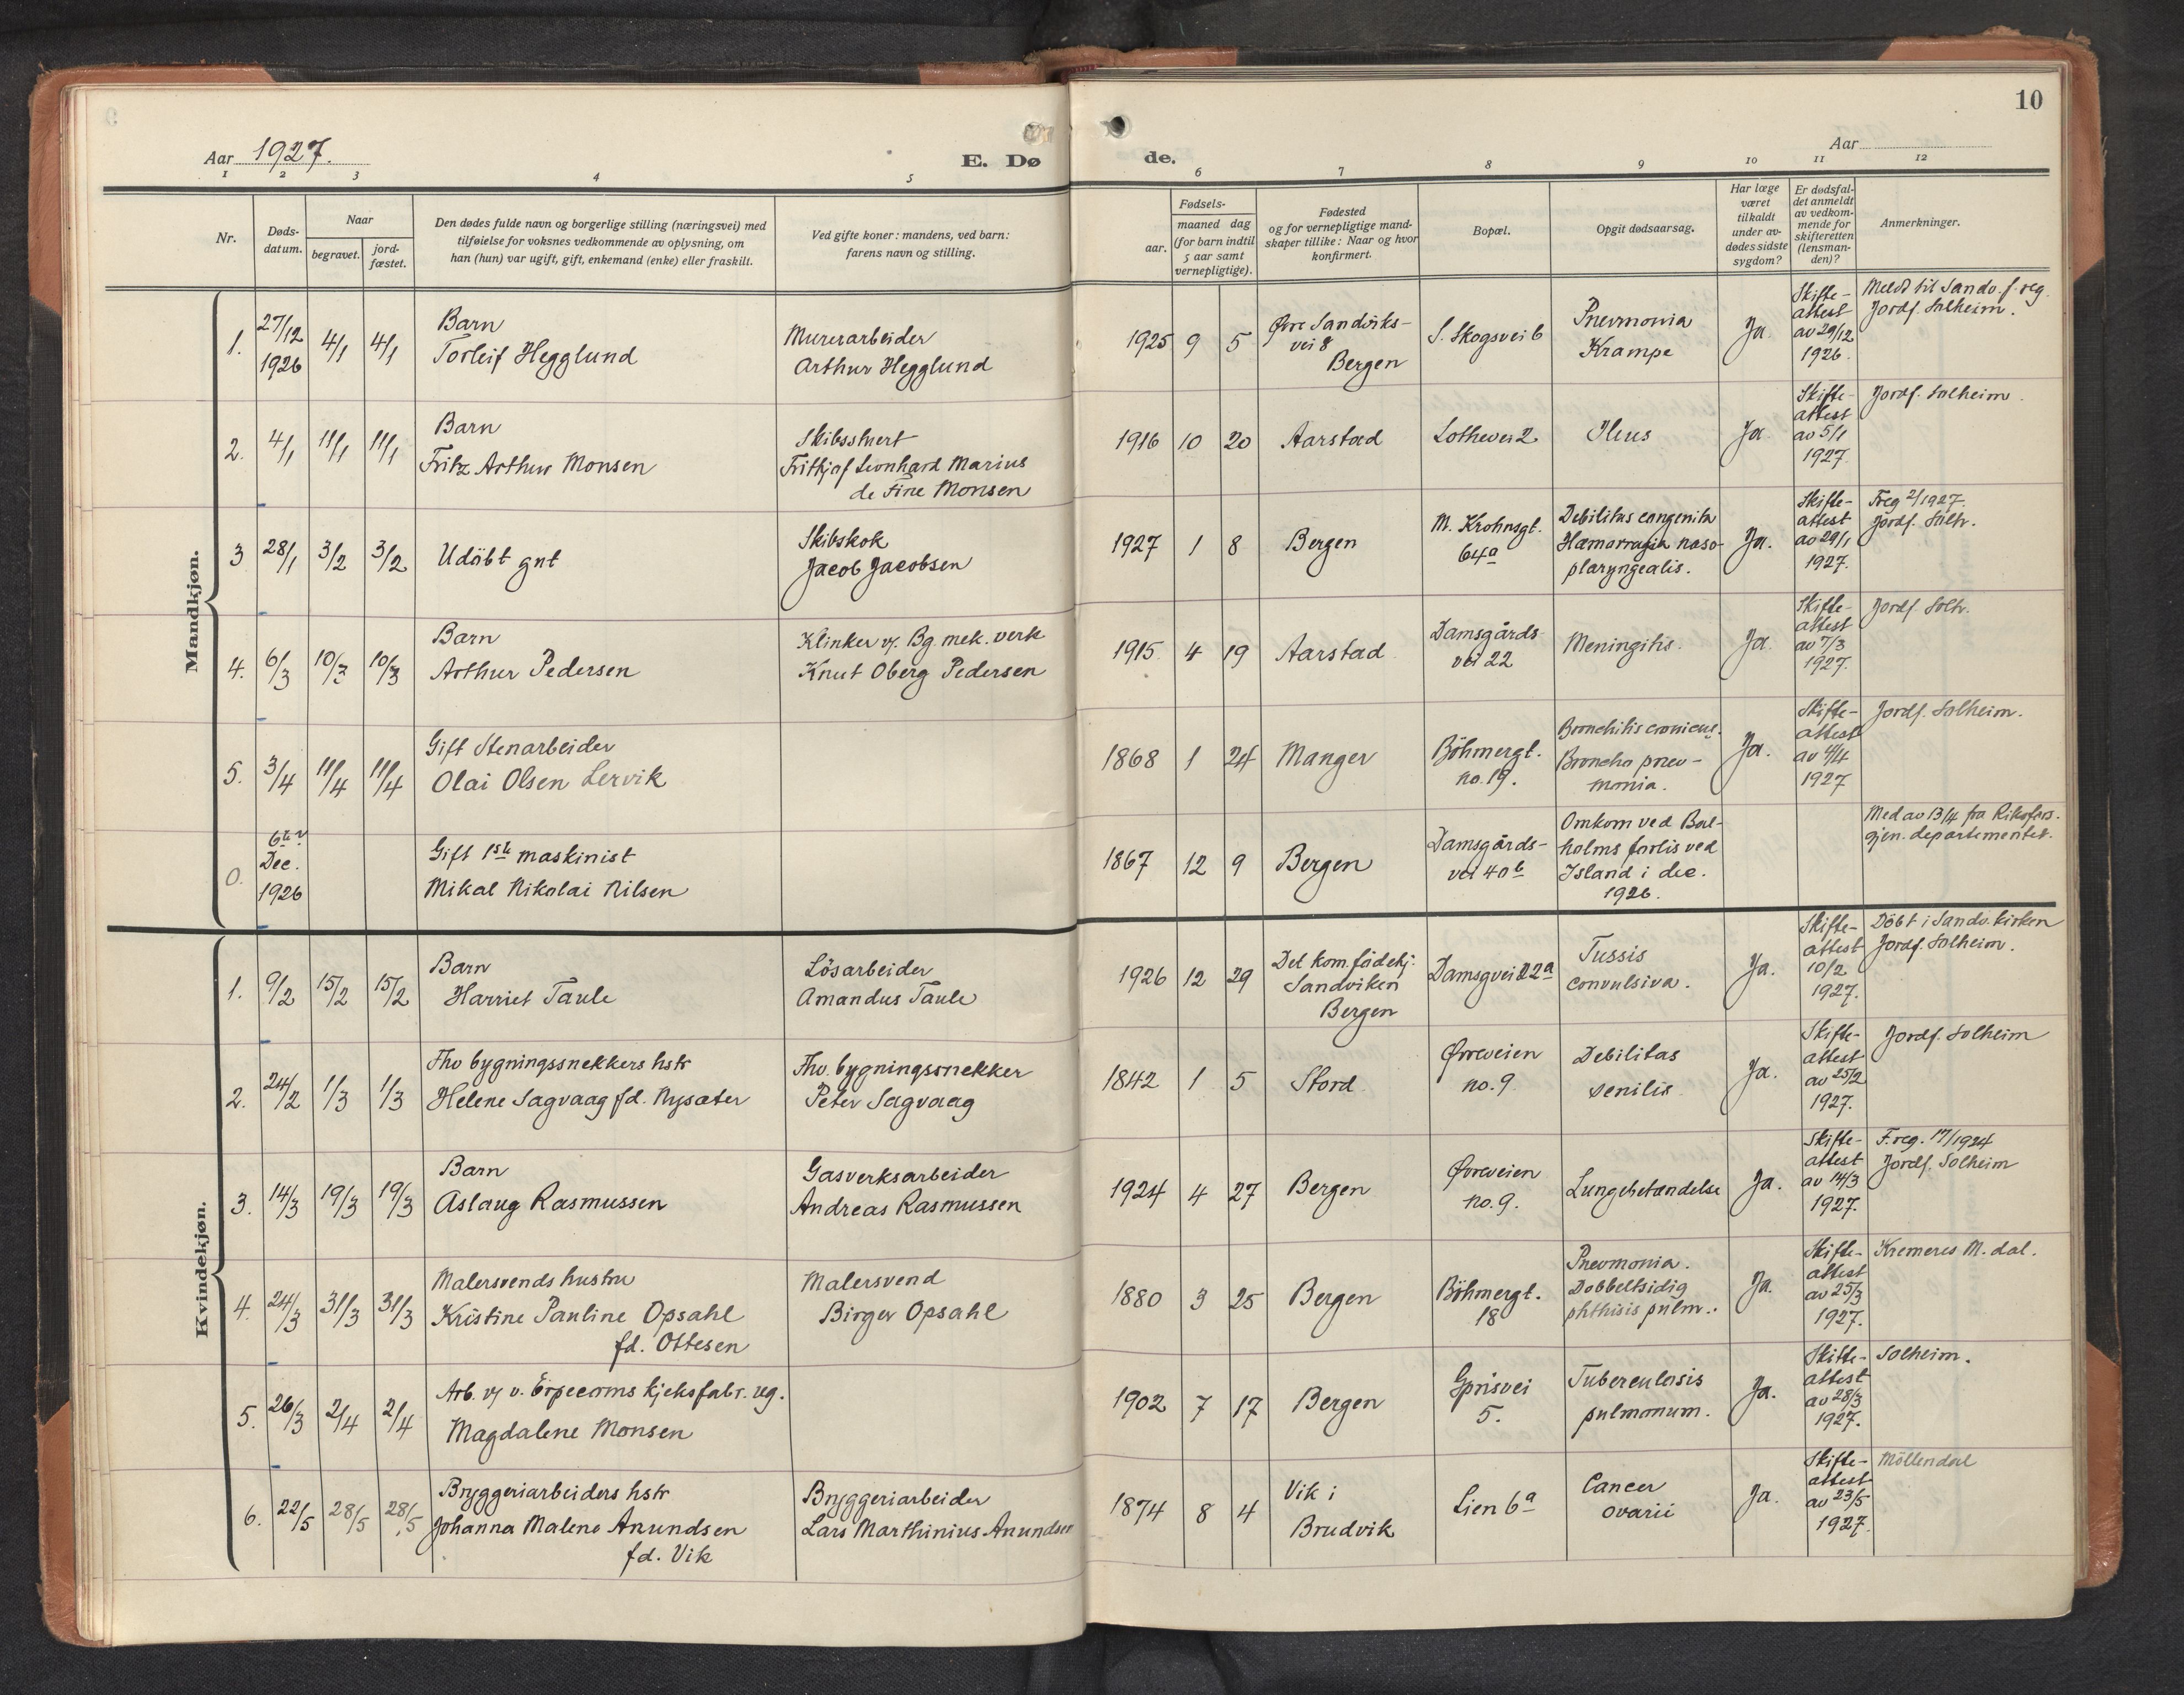 10
Aar 1927.
E. Dø
de.
Aar
1 2 3 4 5 6 7 8 9 10 11 12
Nr.
Døds-
datum.
Naar
begravet.
jord-
fæstet.
Den dødes fulde navn og borgerlige stilling (næringsvei) med
tilføielse for voksnes vedkommende av oplysning, om
han (hun) var ugift, gift, enkemand (enke) eller fraskilt.
Ved gifte koner: mandens, ved barn:
farens navn og stilling.
Fødsels-
aar.
maaned dag
(for barn indtil
5 aar samt
vernepligtige).
Fødested
og for vernepligtige mand-
skaper tillike: Naar og hvor
konfirmert.
Bopæl.
Opgit dødsaarsag.
Har læge
været
tilkaldt
under av-
dødes sidste
sygdom?
Er dødsfal-
det anmeldt
av vedkom-
mende for
skifteretten
(lensman-
den)?
Anmerkninger.
Mandkjøn.
1.
27/12
1926
4/1
4/1
Barn
Torleif Hegglund
Murerarbeider
Arthur Hegglund
1925 9 5
Øvre Sandviks-
vei 8
Bergen
S. Skogsvei 6
Pnevmonia
Krampe
Ja.
Skifte-
attest
av 29/12
1926.
Meldt til Sandv. f. reg.
Jordf. Solheim.
2.
4/1
11/1
11/1
Barn
Fritz Arthur Monsen
Skibsstuert
Frithjof Leonhard Marius
de Fine Monsen
1916 10 20
Aarstad
Lothevei 2.
Ileus
Ja.
Skifte-
attest
av 5/1
1927.
Jordf. Solheim.
3
28/1
3/2
3/2
Udöbt gut
Skibskok
Jacob Jacobsen
1927 1 8
Bergen
M. Krohnsgt.
64a
Debilitas congenita
Hæmorragia naso-
pharyngealis.
Ja.
Skifte-
attest
av 29/1
1927.
Freg 2/1927.
Jordf. Solh.
4.
6/3
10/3
10/3
Barn
Arthur Pedersen
Klinker v/. Bg. mek. verk
Knut Oberg Pedersen
1915 4 19
Aarstad
Damsgårds-
vei 22
Meningitis.
Ja.
Skifte-
attest
av 7/3
1927.
Jordf. Solh.
5.
3/4
11/4
11/4
Gift Stenarbeider
Olai Olsen Lervik
1868 1 24
Manger
Böhmergt.
no. 19.
Bronchitis cronicus.
Broncho pnev-
monia.
Ja.
Skifte-
attest
av 4/4
1927
Jordf. Solheim.
0.
6te
Dec.
1926
Gift 1ste maskinist
Mikal Nikolai Nilsen
1867 12 9
Bergen
Damsgårds-
vei 40b
Omkom ved Bal-
holms forlis ved
Island i dec.
1926.
Med av 13/4 fra Riksfors.
gjen. departementet.
Kvindekjøn.
1.
9/2
15/2
15/2
Barn
Harriet Taule
Lösarbeider
Amandus Taule
1926 12 29
Det kom. födehj:
Sandviken
Bergen
Damsgvei 22a
Tussis
convulsiva.
Ja.
Skifte-
attest
10/2
1927.
Döbt i Sandv. kirken
Jordf. Solheim.
2.
24/2
1/3
1/3
Fhv bygningssnekkers hstr
Helene Sagvaag fd. Nysæter
Fhv. bygningssnekker
Peter Sagvaag
1842 1 5
Stord
Øvreveien
no. 9.
Debilitas
senilis
Ja.
Skifte-
attest
av 25/2
1927.
Jordf. Solheim
3.
14/3
19/3
19/3
Barn
Aslaug Rasmussen
Gasverksarbeider
Andreas Rasmussen
1924 4 27
Bergen
Øvreveien
no. 9.
Lungebetændelse
Ja.
Skifte-
attest
av 14/3
1927.
F.reg. 17/1924
Jordf. Solheim
4.
24/3
31/3
31/3
Malersvends hustru
Kristine Pauline Opsahl
fd. Ottesen
Malersvend
Birger Opsahl
1880 3 25
Bergen
Böhmergt.
18
Pnevmonia.
Dobbeltsidig
phthisis pulm..
Ja.
Skifte-
attest
av 25/3
1927.
Kremeres M. dal.
5.
26/3
2/4
2/4
Arb. v/ v. Erpecoms kjeksfabr. ug.
Magdalene Monsen
1902 7 17
Bergen
5.
Tuberculosis
pulmonum.
Ja.
Skifte-
attest
av 28/3
1927.
Solheim.
6.
22/5
28/5
28/5
Bryggeriarbeiders hstr
Johanna Malene Anundsen
fd. Vik
Bryggeriarbeider
Lars Marthinius Anundsen
1874 8 4
Vik i
Brudvik
Lien 6a
Cancer
ovarii
Ja.
Skifte-
attest
av 23/5
1927.
Möllendal